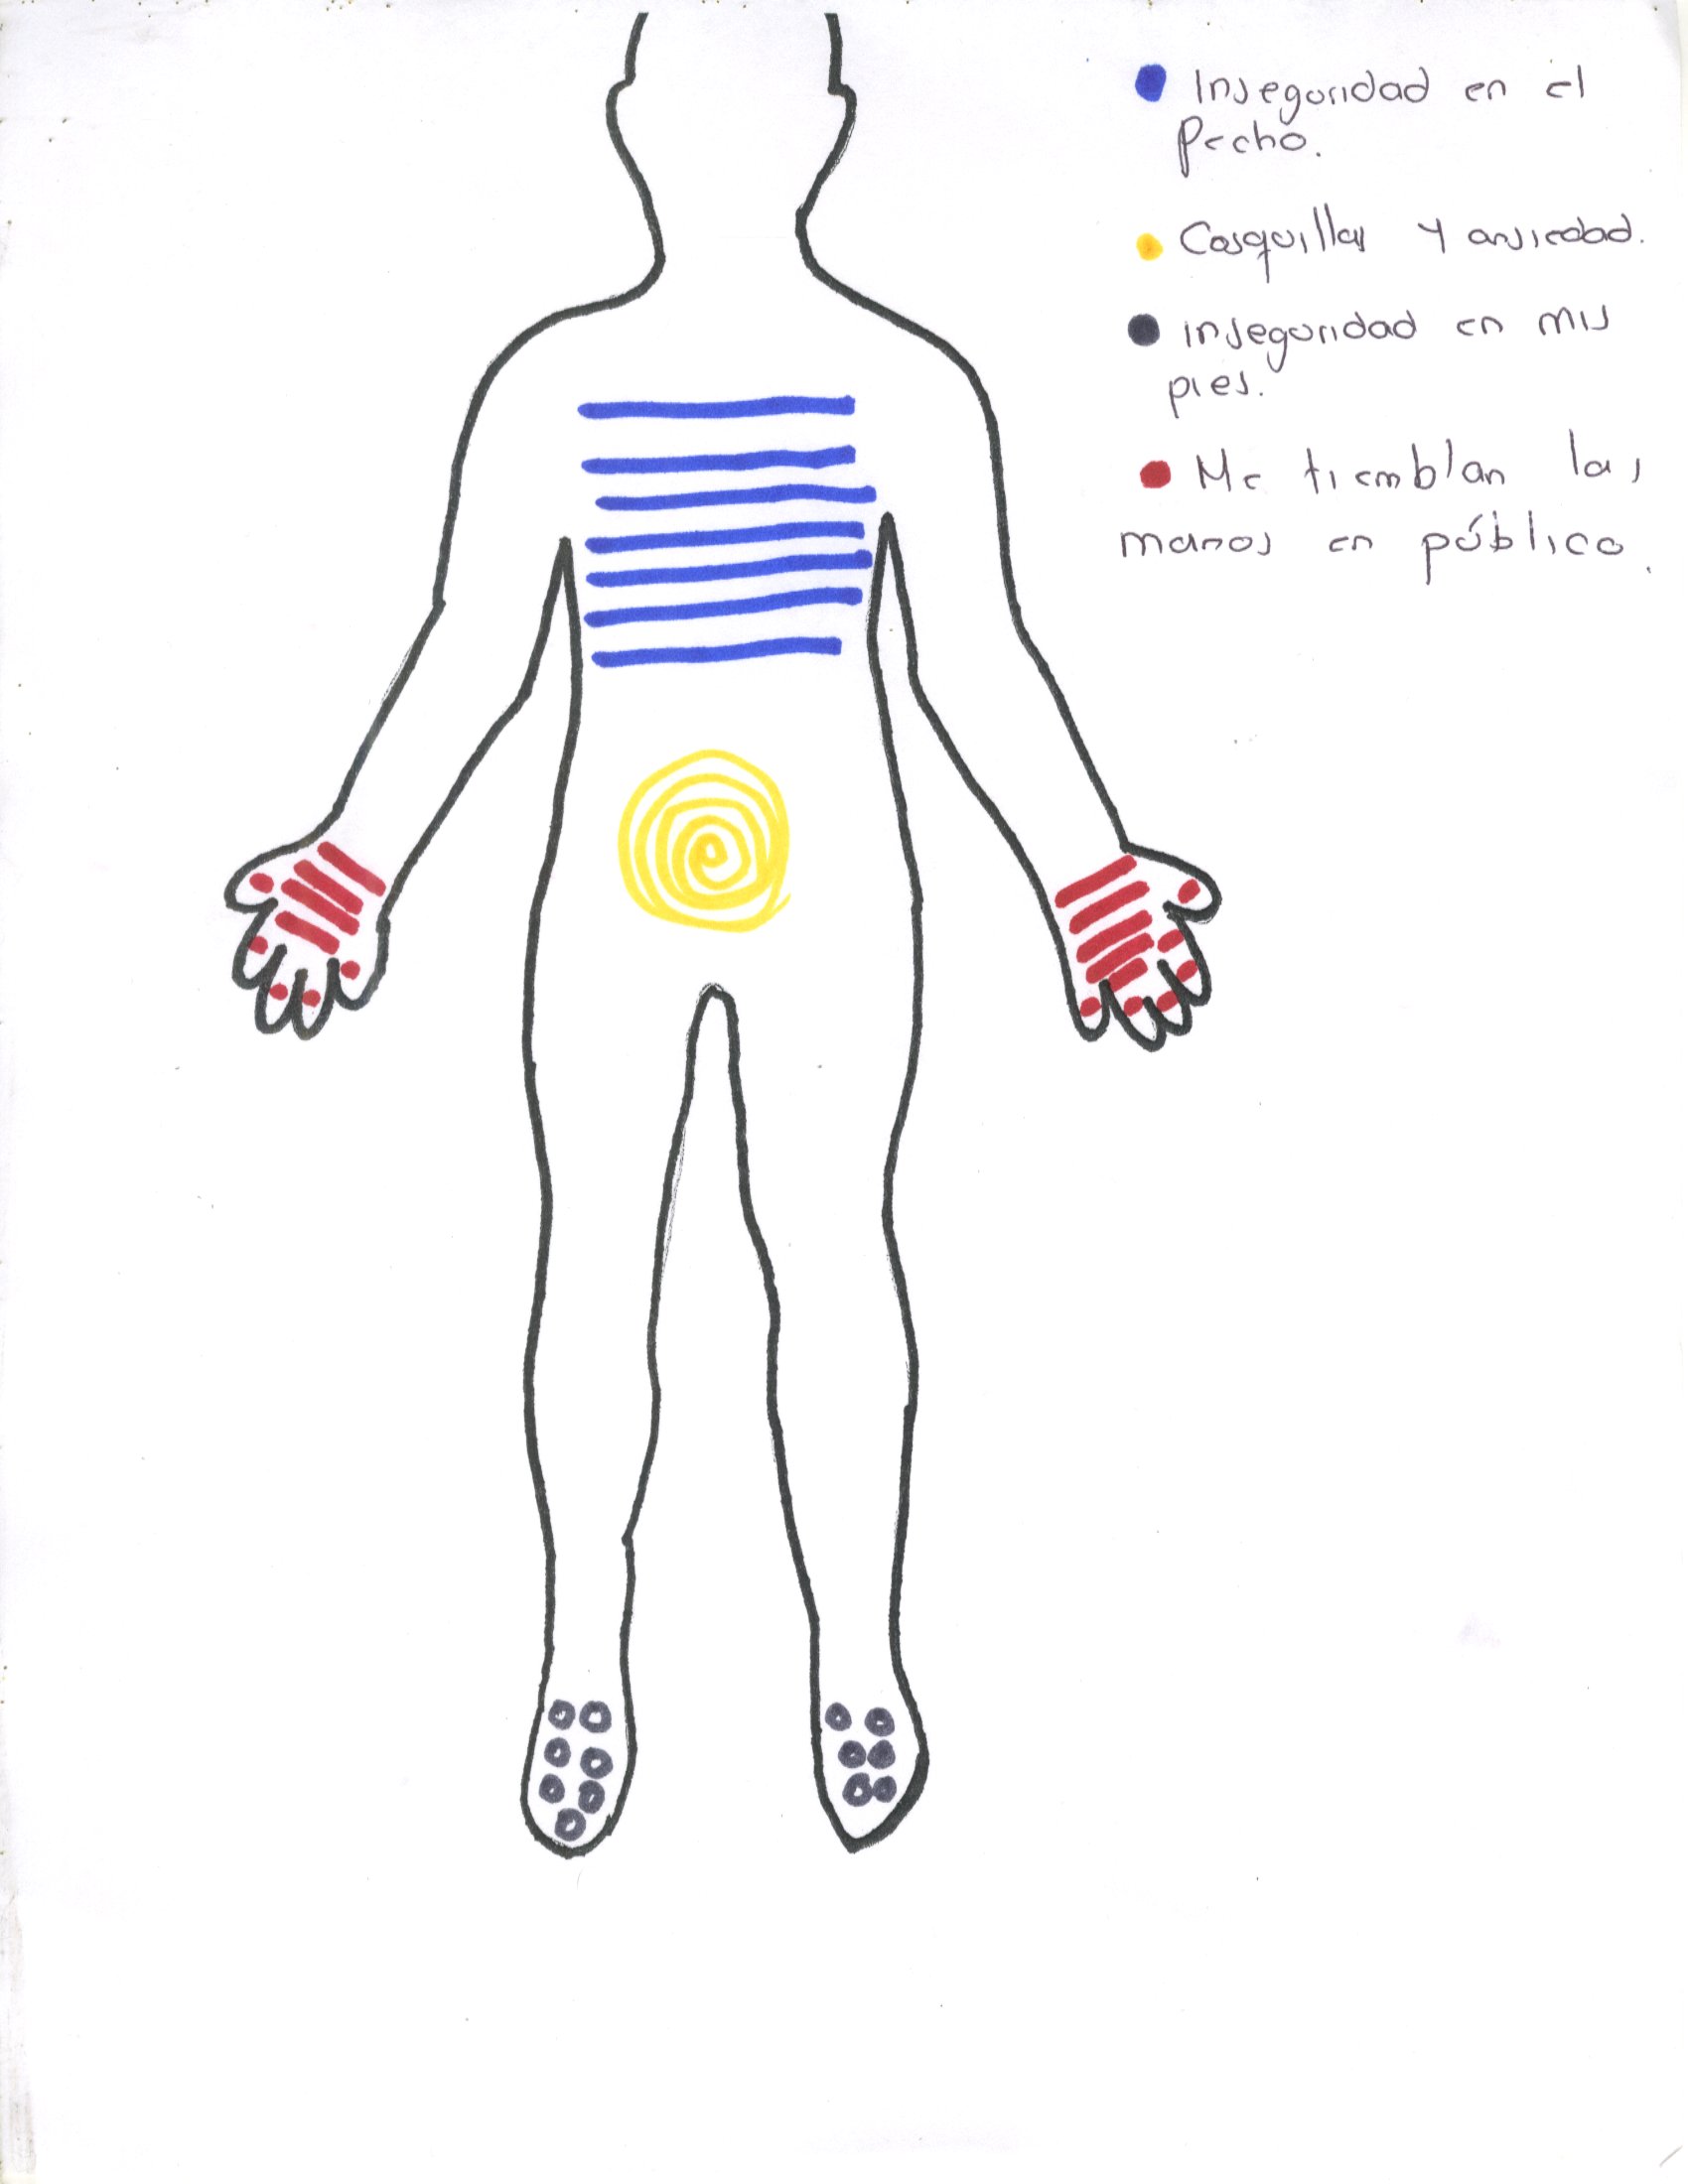 Inseguridad en el
Pecho.
Cosquillas y ansiedad.
inseguridad en mis
pies.
Me tiemblan las
manos en público.